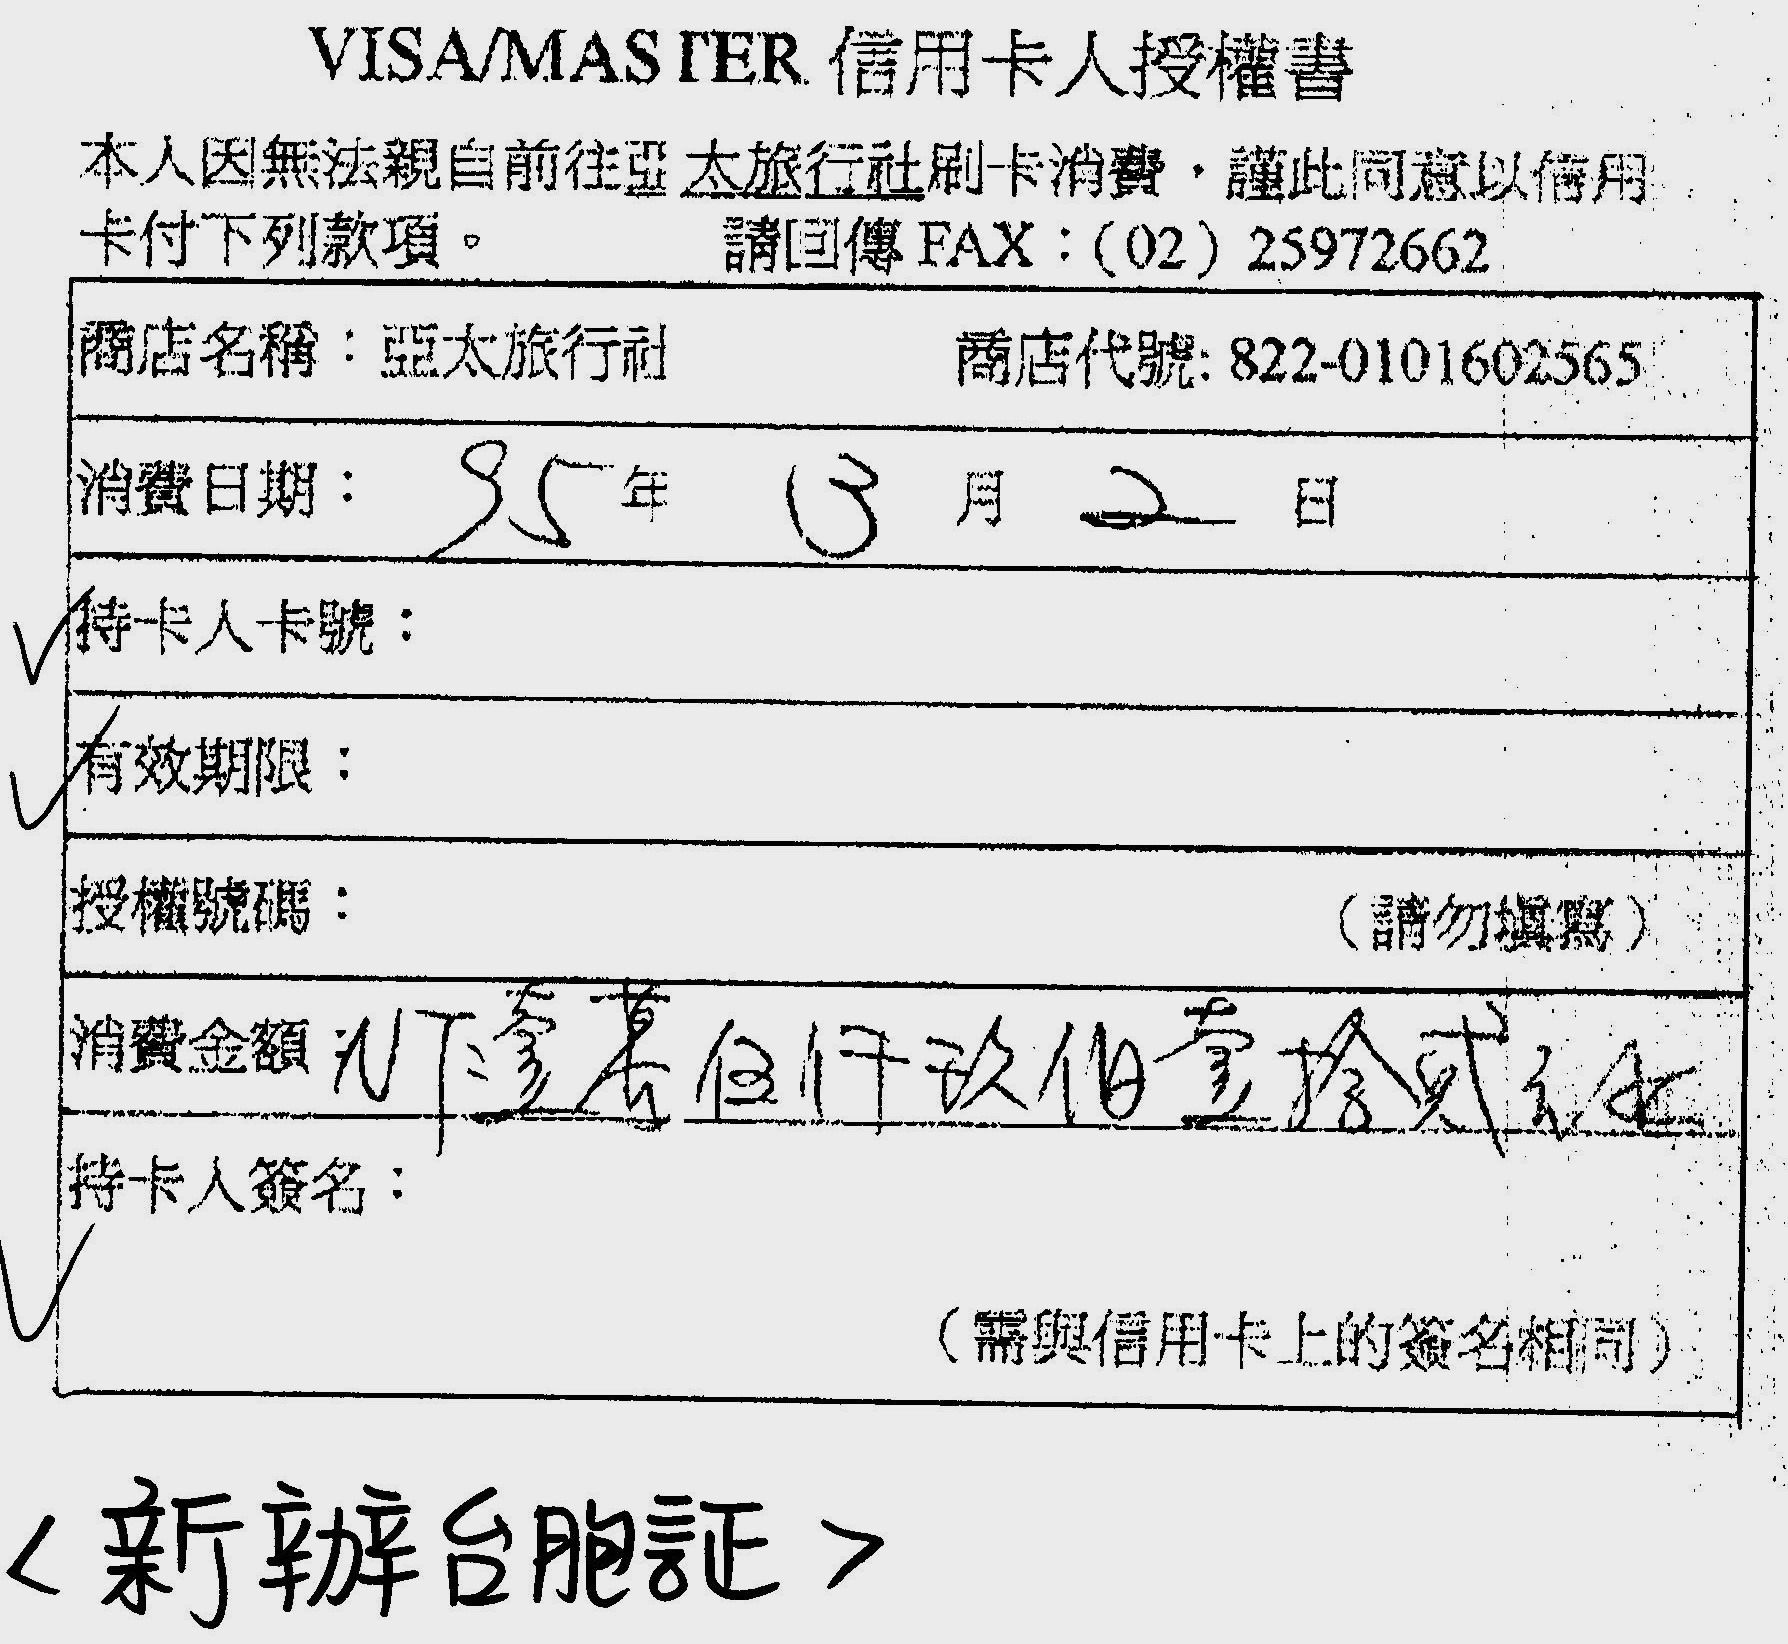 VISA/MASTER 信用卡人授權書
本人因無法親自前往亞太旅行社刷卡消費，謹此同意以信用
卡付下列款項。 請回傳 FAX：(02) 25972662
商店名稱：亞太旅行社 商店代號: 822-0101602565
消費日期： 95 年 03 月 2 日
持卡人卡號：
有效期限：
授權號碼： （請勿填寫）
消費金額：NT：壹萬伍仟玖佰壹拾貳元
持卡人簽名：
（需與信用卡上的簽名相同）
<新辦台胞証>